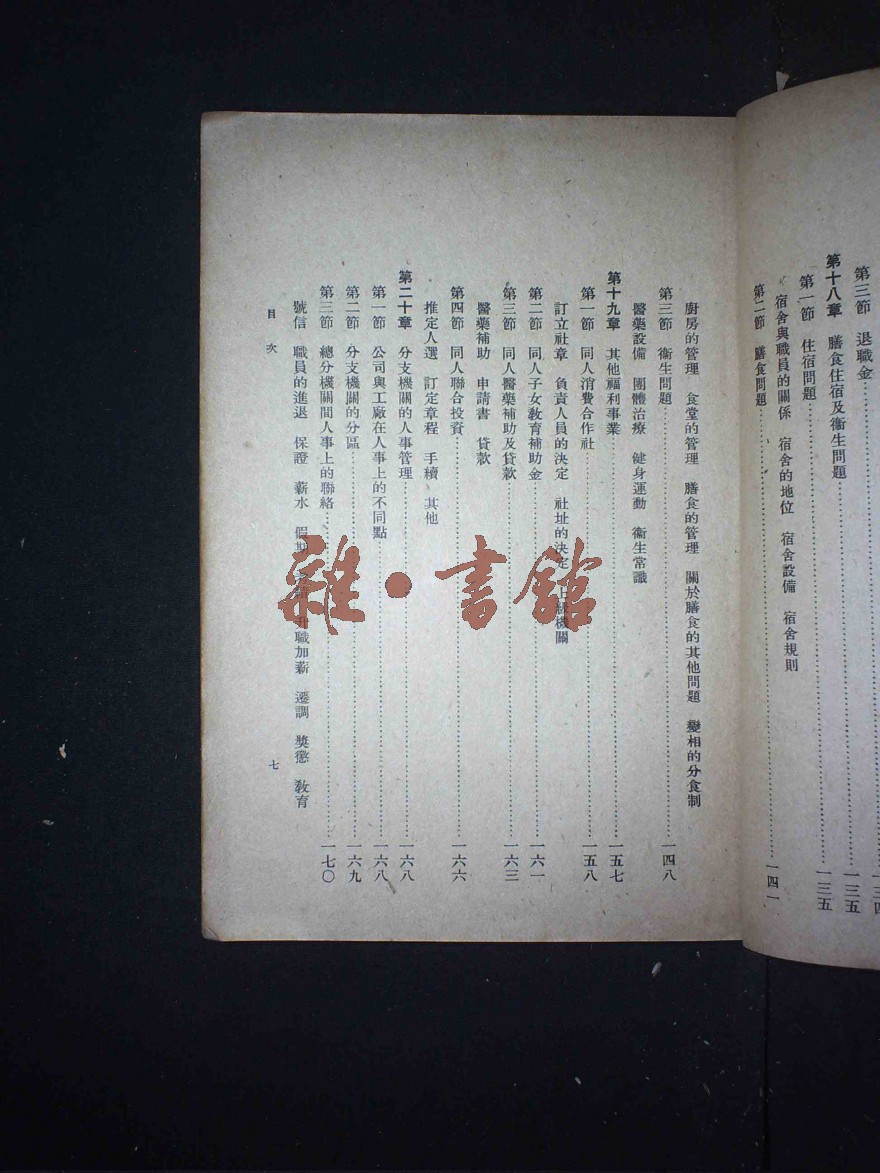 第三節 退職金……一三四
第十八章 膳食住宿及衞生問題……一三五
第一節 住宿問題……一三五
宿舍與職員的關係 宿舍的地位 宿舍設備 宿舍規則
第二節 膳食問題……一四一
廚房的管理 食堂的管理 膳食的管理 關於膳食的其他問題 變相的分食制
第三節 衞生問題……一四八
醫藥設備 團體治療 健身運動 衞生常識
第十九章 其他福利事業……一五七
第一節 同人消費合作社……一五八
訂立社章 負責人員的決定 社址的決定 上級機關
第二節 同人子女敎育補助金……一六一
第三節 同人醫藥補助及貸款……一六三
醫藥補助 申請書 貸款
第四節 同人聯合投資……一六六
推定人選 訂定章程 手續 其他
第二十章 分支機關的人事管理……一六八
第一節 公司與工廠在人事上的不同點……一六八
第二節 分支機關的分區……一六九
第三節 總分機關間人事上的聯絡……一七〇
號信 職員的進退 保證 薪水 假期 升職加薪 遷調 獎懲 敎育
目次
七
雜·書館